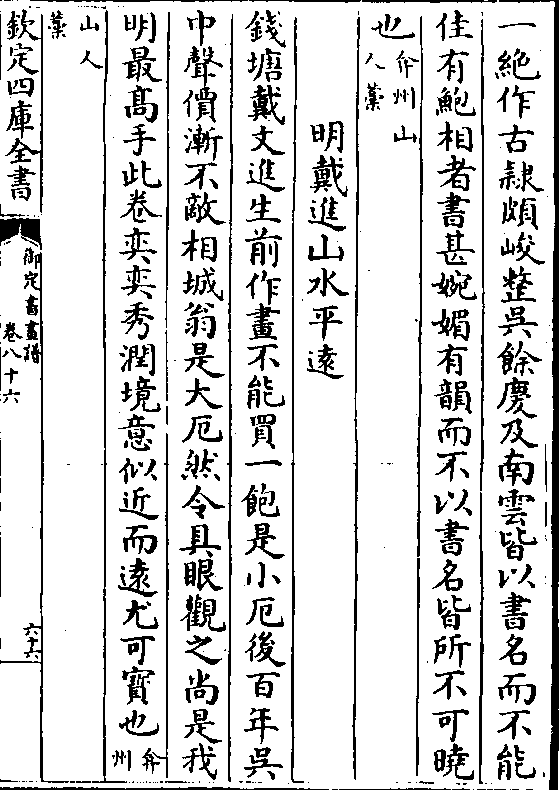 一絶作古隸頗峻整吳餘慶及南雲皆以書名而不能
佳有鮑相者書甚婉媚有韻而不以書名皆所不可曉
也弇州山人藁
明戴進山水平遠
錢塘戴文進生前作畫不能買一飽是小厄後百年吳
中聲價漸不敵相城翁是大厄然令具眼觀之尚是我
明最髙手此卷奕奕秀潤境意似近而遠尤可寳也弇州
山人藁
欽定四庫全書
御定書畫譜
卷八十六
六十六